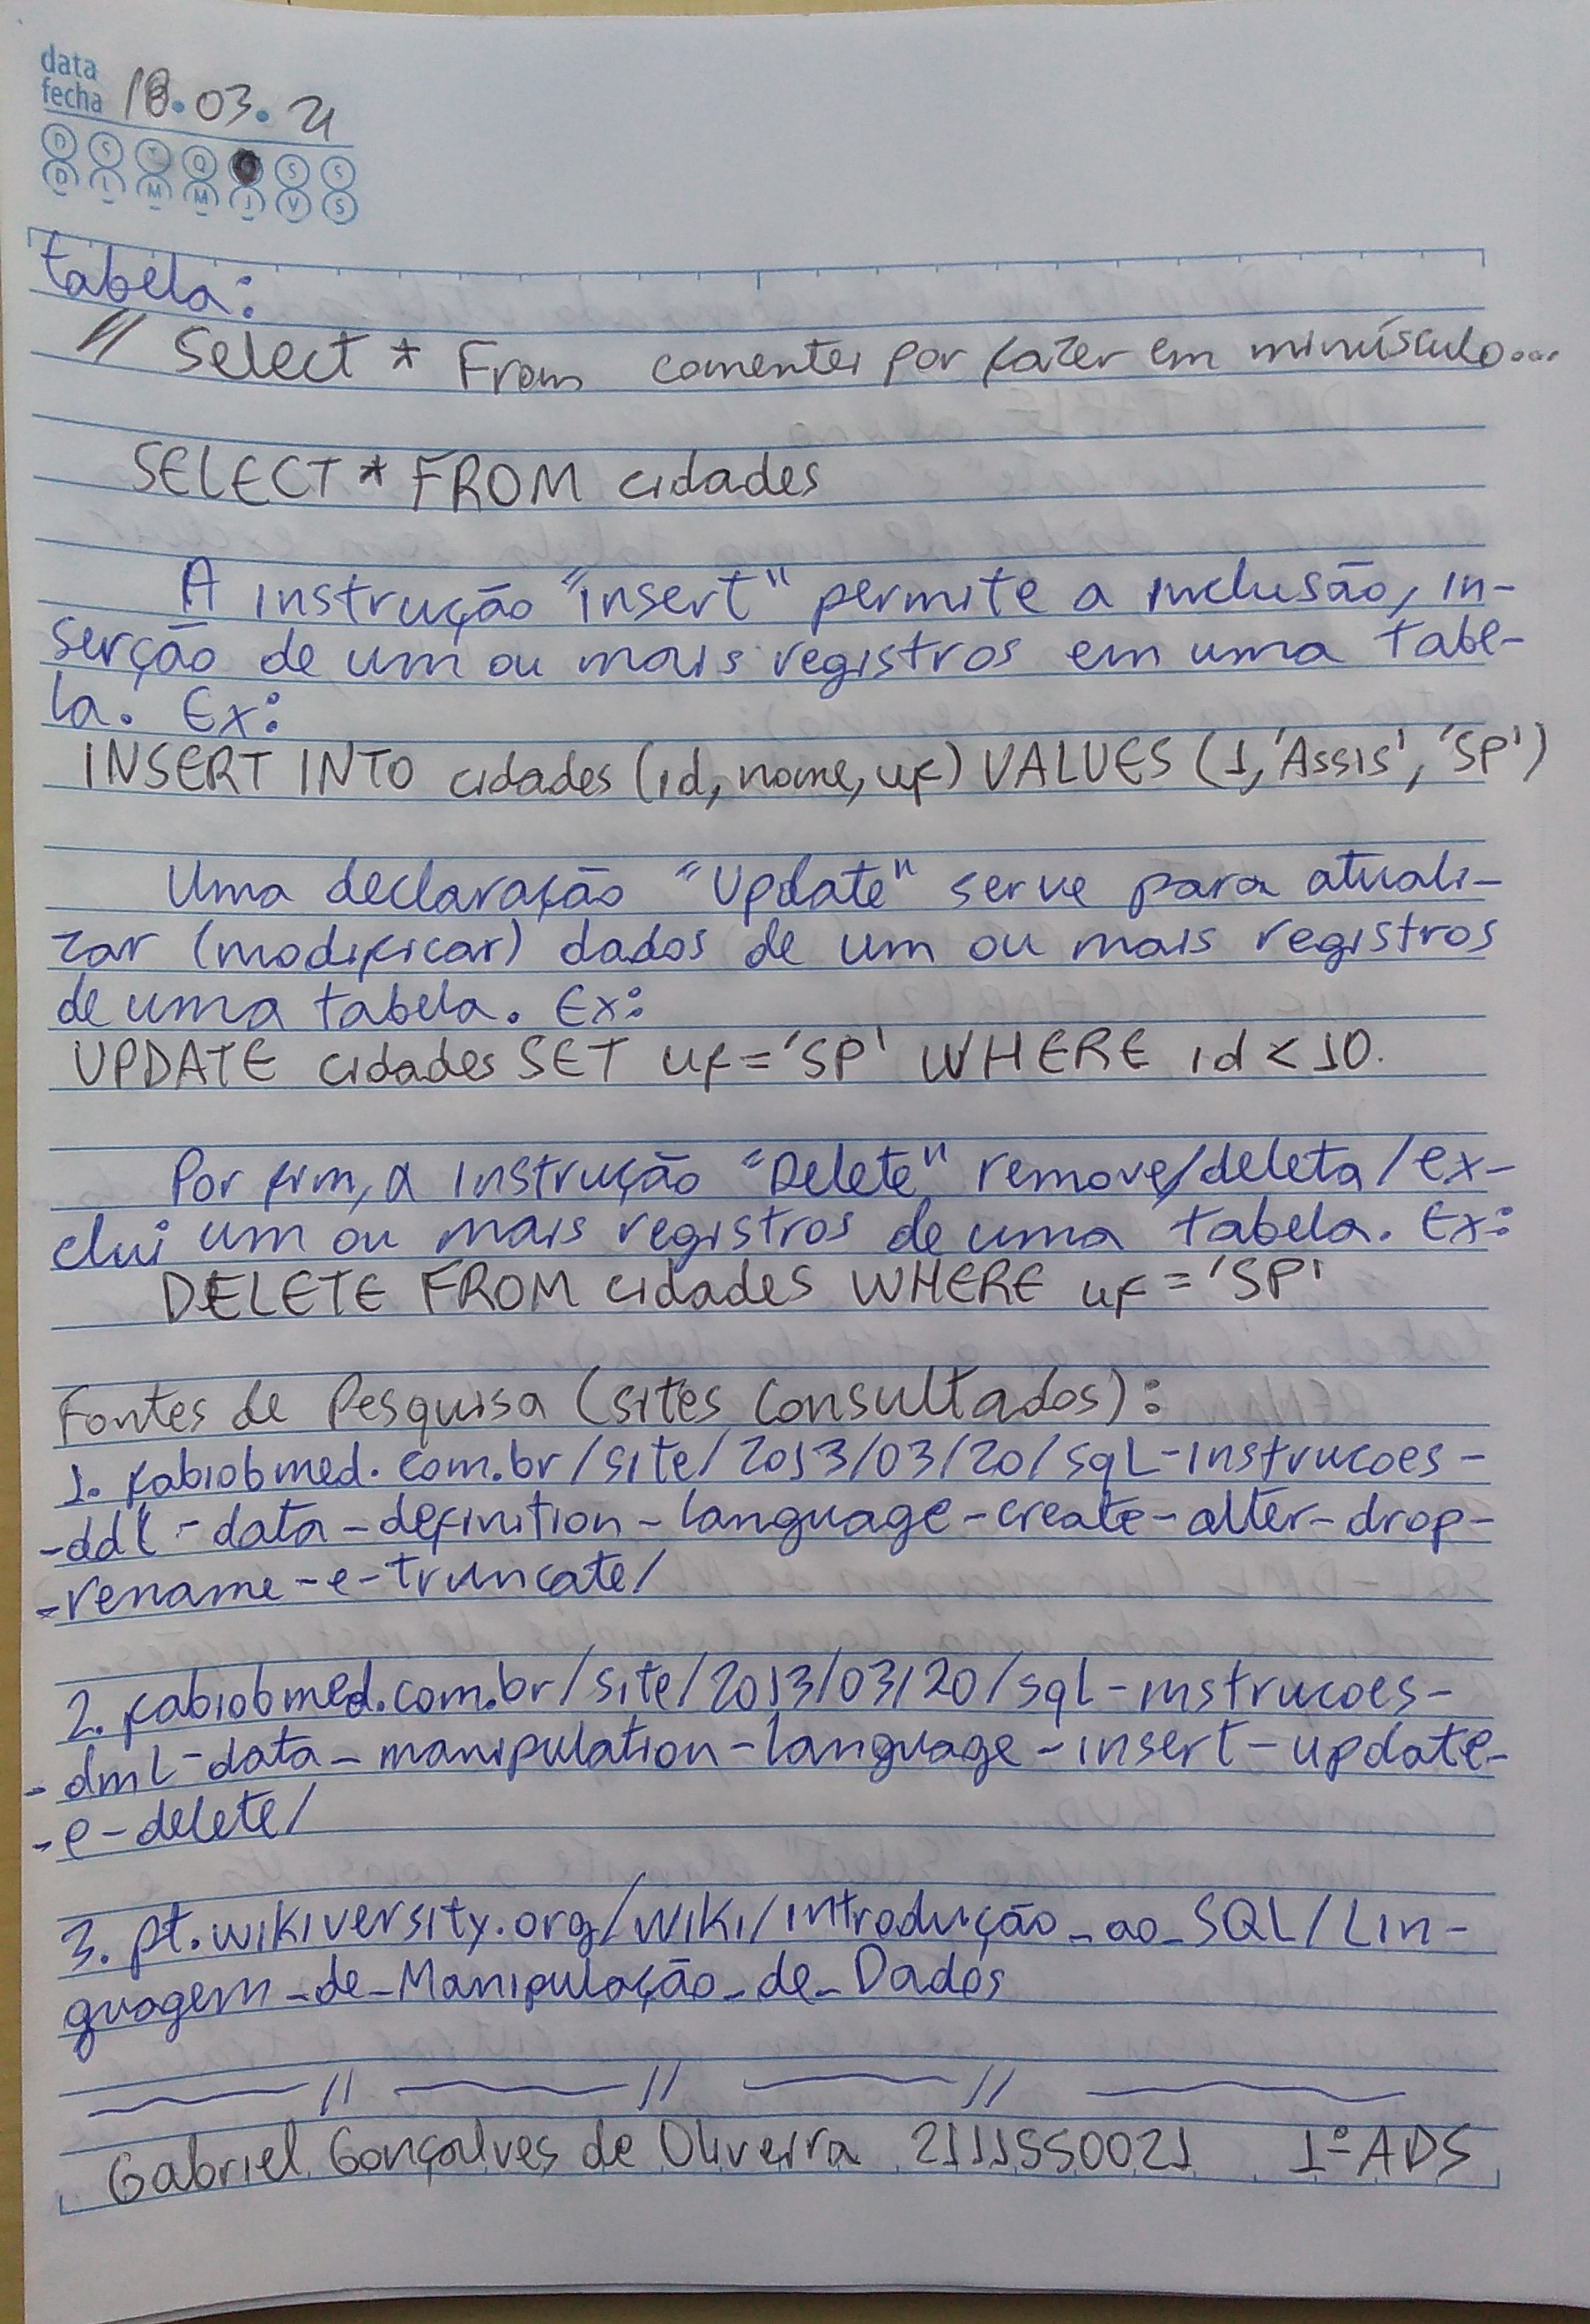 data
fecha 18.03.21
D S T Q S S
D L M M J V S
tabela:
// Select * From comentei por fazer em minúsculo...
SELECT * FROM cidades
A instrução "insert" permite a inclusão, in-
serção de um ou mais registros em uma tabe-
la. Ex:
INSERT INTO cidades (id, nome, uf) VALUES (1, 'Assis', 'SP')
Uma declaração "Update" serve para atuali-
zar (modificar) dados de um ou mais registros
de uma tabela. Ex:
UPDATE cidades SET uf = 'SP' WHERE id < 10.
Por fim, a instrução "Delete" remove/deleta/ex-
clui um ou mais registros de uma tabela. Ex:
DELETE FROM cidades WHERE uf = 'SP'
Fontes de Pesquisa (sites consultados):
1. fabiobmed.com.br/site/2013/03/20/sql-instrucoes-
-ddl-data-definition-language-create-alter-drop-
-rename-e-truncate/
2. fabiobmed.com.br/site/2013/03/20/sql-instrucoes-
-dml-data-manipulation-language-insert-update-
-e-delete/
3. pt.wikiversity.org/wiki/introdução_ao_SQL/Lin-
guagem_de_Manipulação_de_Dados
Gabriel Gonçalves de Oliveira 2111550021 1º ADS